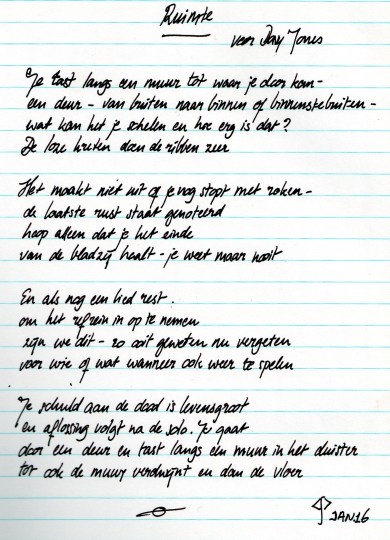 Ruimte
voor Davy Jones
Je tast langs een muur tot waar je door kan -
een deur - van buiten naar binnen of binnenstebuiten -
wat kan het je schelen en hoe erg is dat?
De loze kreten doen de ribben zeer
Het maakt niet uit of je nog stopt met roken -
de laatste rust staat genoteerd
hoop alleen dat je het einde
van de bladzij haalt - je weet maar nooit
En als nog een lied rest
om het refrein in op te nemen
zijn we dit - zo ooit geweten nu vergeten
voor wie of wat wanneer ook weer te spelen
Je schuld aan de dood is levensgroot
en aflossing volgt na de solo. Je gaat
door een deur en tast langs een muur in het duister
tot ook de muur verdwijnt en dan de vloer
JAN16